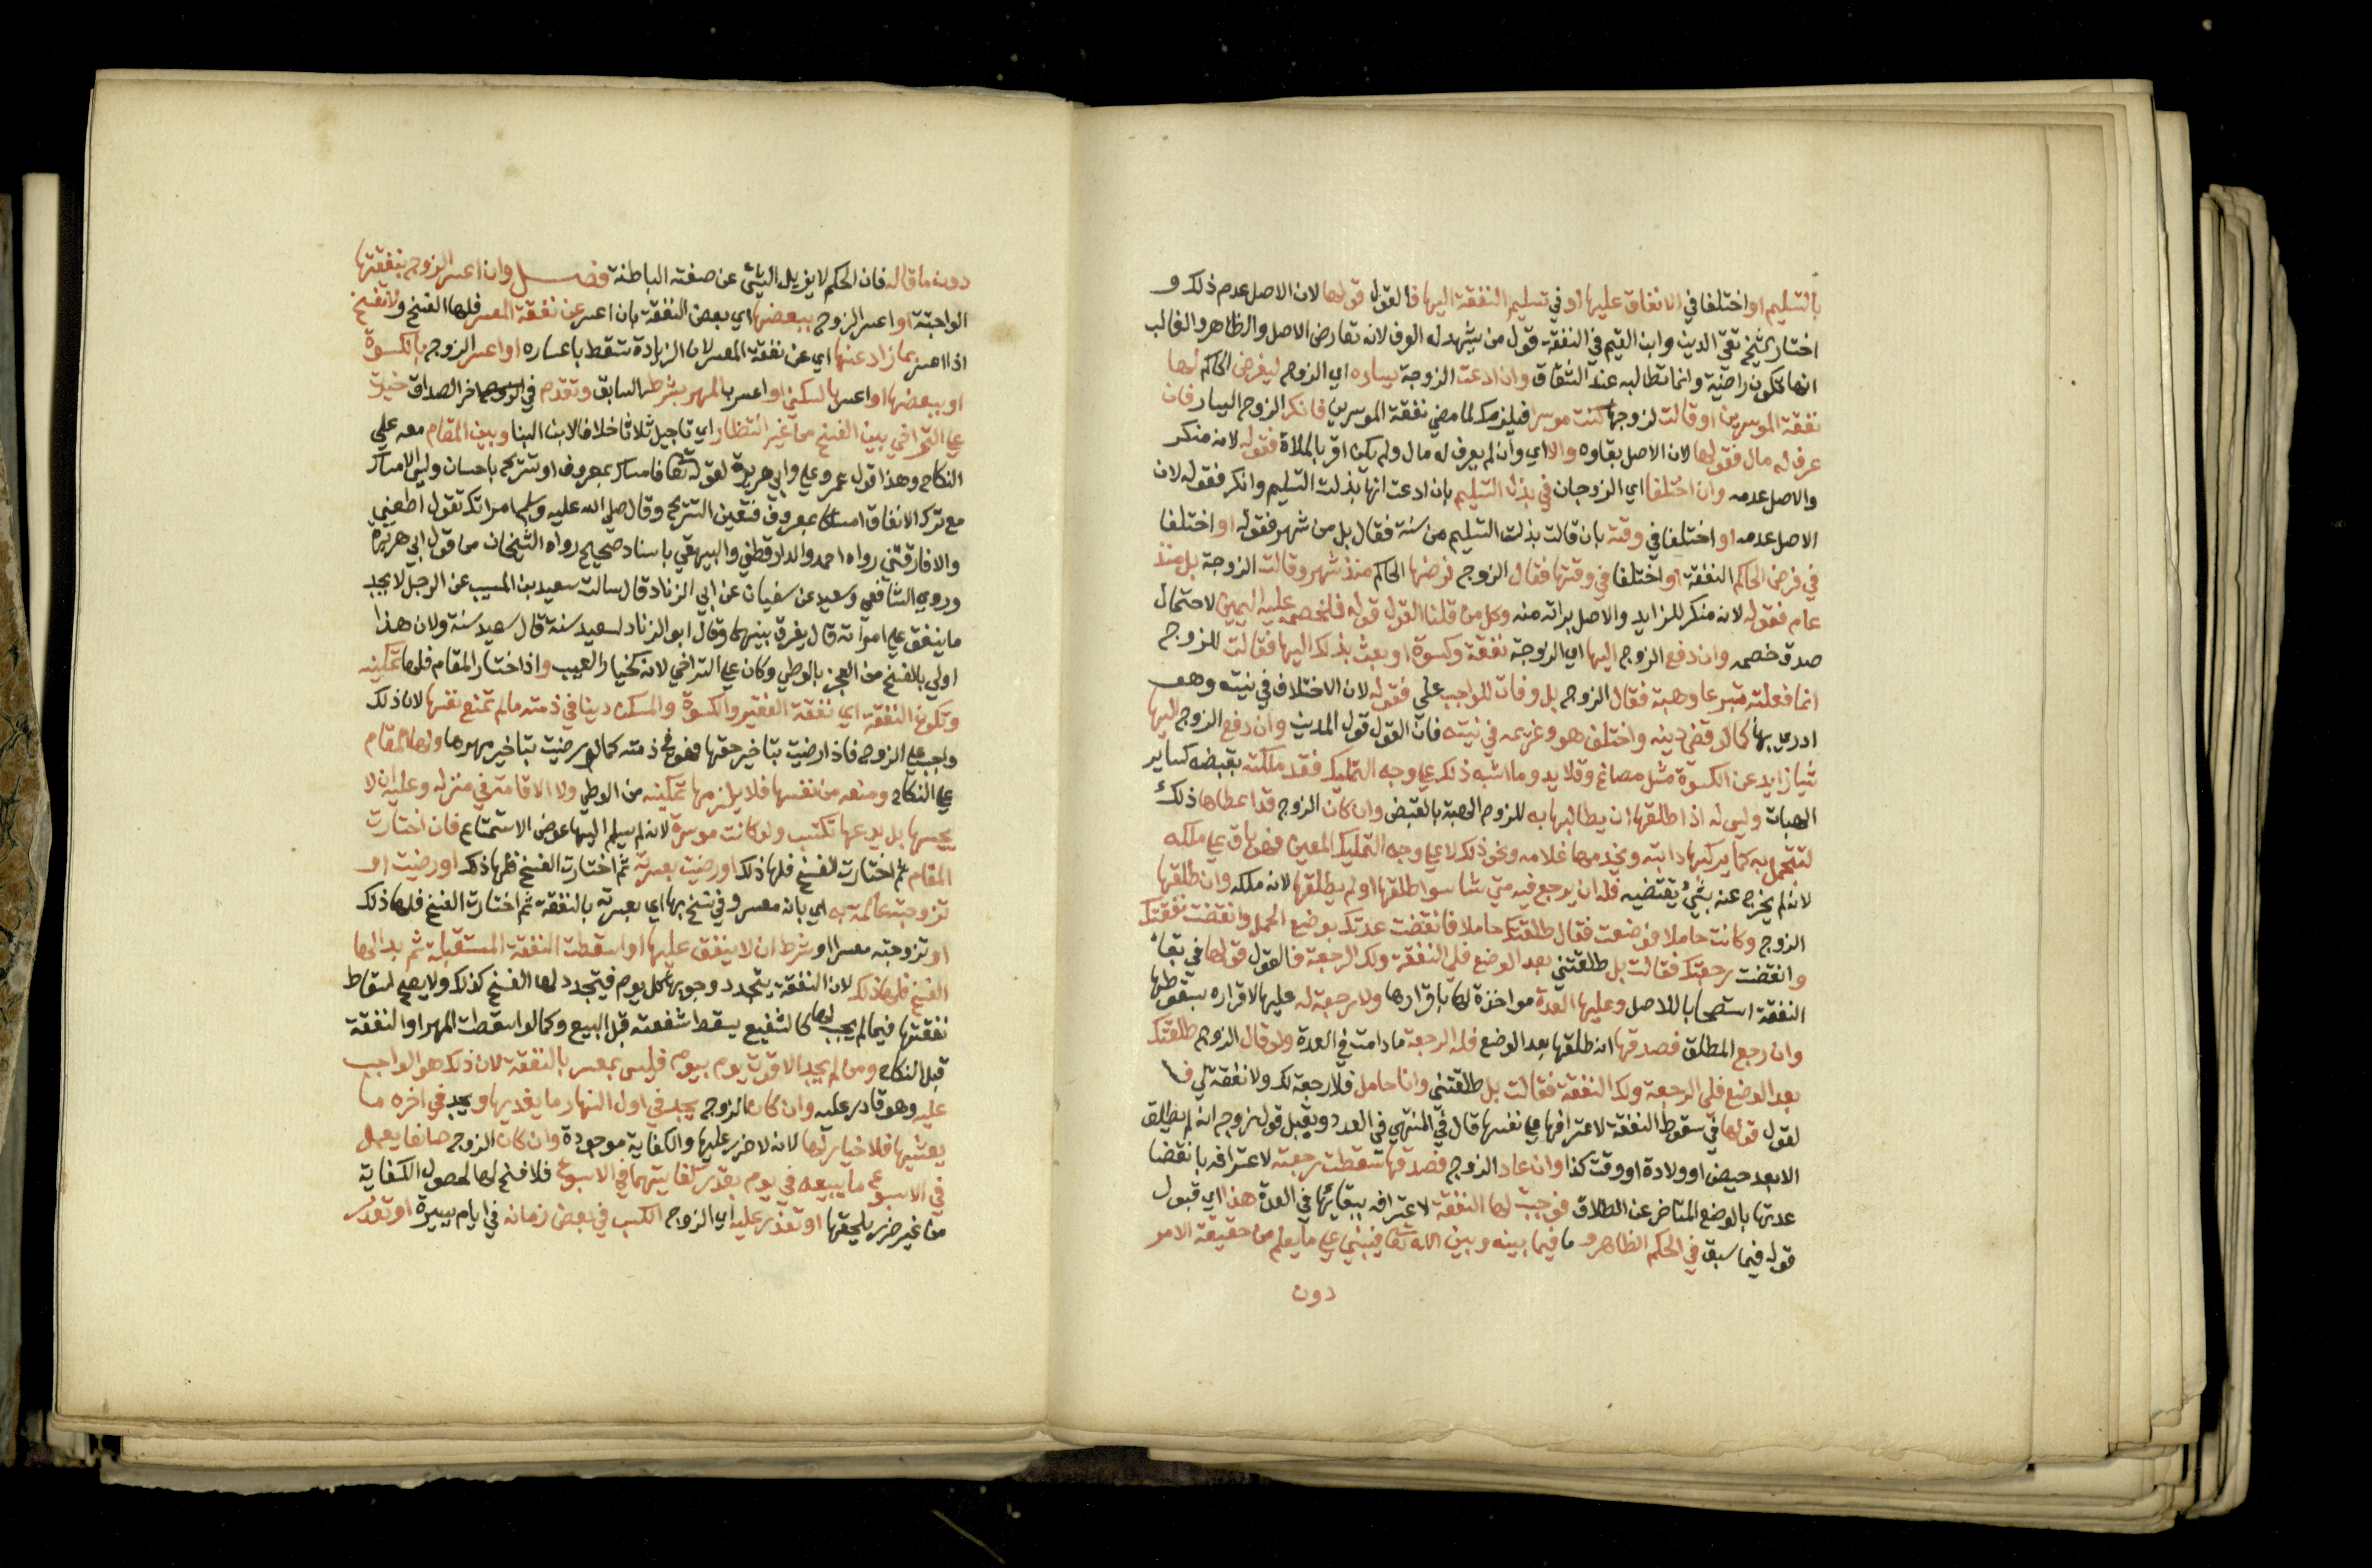 بالتسليم او اختلفا في الانفاق عليها او في تسليم النفقة اليها فالقول قولها لان الاصل عدم ذلك و
اختار الشيخ تقي الدين وابن القيم في النفقة قول من يشهد له العرف لانه تعارض الاصل والظاهر والغالب
انها تكون راضية وانما تطالبه عند الشقاق وان ادعت الزوجة يساره اي الزوج ليفرض الحاكم لها
نفقة الموسرين او قالت لزوجها كنت موسرا فيلزمك لما مضي نفقة الموسرين فانكر الزوج اليسار فان
عرف له مال فقولها لان الاصل بقاوه والا اي وان لم يعرف له مال ولم يكن اقر بالملاة فقوله لانه منكر
والاصل عدمه وان اختلفا اي الزوجان في بذل التسليم بان ادعت انها بذلت التسليم وانكر فقوله لان
الاصل عدمه او اختلفا في وقته بان قالت بذلت التسليم من سنة فقال بل من شهر فقوله او اختلفا
في فرض الحاكم النفقة او اختلفا في وقتها فقال الزوج فرضها الحاكم منذ شهر وقالت الزوجة بل منذ
عام فقوله لانه منكر للزايد والاصل براته منه وكل من قلنا القول قوله فلخصمه عليه اليمين لاحتمال
صدق خصمه وان دفع الزوج اليها اي الزوجة نفقة وكسوة او بعث بذلك اليها فقالت للزوج
انما فعلته تبرعا وهبة فقال الزوج بل وفات للواجب علي فقوله لان الاختلاف في نيته وهو
ادري بها كما لو قضي دينه واختلف هو وغريمه في نيته فان القول قول المدين وان دفع الزوج اليها
شيا زايد عن الكسوة مثل مصاغ وقلايد وما اشبه ذلك علي وجه التمليك فقد ملكته بقبضه كساير
الهبات وليس له اذا طلقها ان يطالبها به للزوم الهبة بالقبض وان كان الزوج قد اعطاها ذلك
لتتجمل به كما يركبها دابته ويخدمها غلامه ونحو ذلك لا علي وجه التمليك المعين فهو باق علي ملكه
لانه لم يخرج عنه بشيء يقتضيه فله ان يرجع فيه متي شا سوا طلقها او لم يطلقها لانه ملكه وان طلقها
الزوج وكانت حاملا فوضعت فقال طلقتك حاملا فانقضت عدتك بوضع الحمل وانقضت نفقتك
وانقضت رجعتك فقالت بل طلقتني بعد الوضع فلي النفقة ولك الرجعة فالقول قولها في بقاء
النفقة استصحابا للاصل وعليها العدة مواخذة لها باقرارها ولا رجعة له عليها لاقراره بسقوطها
وان رجع المطلق فصدقها انه طلقها بعد الوضع فله الرجعة ما دامت في العدة ولو قال الزوج طلقتك
بعد الوضع فلي الرجعة ولك النفقة فقالت بل طلقتني وانا حامل فلا رجعة لك ولا نفقة لي فا
لقول قولها في سقوط النفقة لاعترافها علي نفسها قال في المنتهي في العدد ويقبل قول زوج انه لم يطلق
الا بعد حيض او ولادة او وقت كذا وان عاد الزوج فصدقها سقطت رجعته لاعترافه بانقضا
عدتها بالوضع المتاخر عن الطلاق فوجبت لها النفقة لاعترافه ببقائها في العدة هذا اي قبول
قوله فيما سبق في الحكم الظاهر و ما فيما بينه وبين الله تعا فينبني علي ما يعلم من حقيقة الامر
دون
دون ما قاله فان الحكم لا يزيل الشيء عن صفته الباطنة فصل وان اعسر الزوج بنفقتها
الواجبة او اعسر الزوج ببعضها اي بعض النفقة بان اعسر عن نفقة المعسر فلها الفسخ ولا تفسخ
اذا اعسر بما زاد عنها اي عن نفقة المعسر لان الزيادة سقط باعساره او اعسر الزوج بالكسوة
او ببعضها او اعسر بالسكني او اعسر بالمهر بشرطه السابق وتقدم في اخر الصداق خيرت
علي التراخي بين الفسخ من غير انتظار اي تاجيل ثلاثا خلافا لابن البنا وبين المقام معه علي
النكاح وهذا قول عمر وعلي وابي هريرة لقوله تعا فامساك بمعروف او تسريح باحسان وليس الامساك
مع ترك الانفاق امساكا بمعروف فتعين التسريح وقال صلي الله عليه وسلم امراتك تقول اطعمني
والا فارقتني رواه احمد والدارقطني والبيهقي باسناد صحيح رواه الشيخان من قول ابي هريرة
وروي الشافعي وسعيد عن سفيان عن ابي الزناد قال سالت سعيد بن المسيب عن الرجل لا يجد
ما ينفق علي امراته قال يفرق بينهما وقال ابو الزناد لسعيد سنة قال سعيد سنة ولان هذا
اولي بالفسخ من العجز بالوطي وكان علي التراخي لانه كخيار العيب واذا اختار المقام فلها تمكينه
وتكون النفقة اي نفقة الفقير والكسوة والمسكن دينا في ذمته ما لم تمنع نفسها لان ذلك
واجب علي الزوج فاذا رضيت بتاخير حقها فهو في ذمته كما لو رضيت بتاخير مهرها ولها المقام
علي النكاح ومنعه من نفسها فلا يلزمها تمكينه من الوطي ولا الاقامة في منزله وعليه ان لا
يحبسها بل يدعها تكتسب ولو كانت موسرة لانه لم يسلم اليها عوض الاستمتاع فان اختارت
المقام ثم اختارت الفسخ فلها ذلك او رضيت بعسرته ثم اختارت الفسخ فلها ذلك او رضيت او
تزوجته عالمة به اي بانه معسر وفي نسخ بها اي بعسرته بالنفقة ثم اختارت الفسخ فلها ذلك
او تزوجته معسرا او شرط ان لا ينفق عليها او اسقطت النفقة المستقبلة ثم بدا لها
الفسخ فلها ذلك لان النفقة يتجدد وجوبها كل يوم فيتجدد لها الفسخ كذلك ولا يصح اسقاط
نفقتها فيما لم يجب لها كالشفيع يسقط شفعته قبل البيع وكما لو اسقطت المهر او النفقة
قبل النكاح ومن لم يجد الا قوت يوم بيوم فليس بمعسر بالنفقة لان ذلك هو الواجب
عليه وهو قادر عليه وان كان الزوج يجد في اول النهار ما يغديها ويجد في اخره ما
يعشيها فلا خيار لها لانه لا ضرر عليها والكفاية موجودة وان كان الزوج صانعا يعمل
في الاسبوع ما يبيعه في يوم بقدر كفايتهما في الاسبوع فلا فسخ لها لحصول الكفاية
من غير ضرر يلحقها او تعذر عليه اي الزوج الكسب في بعض زمانه في ايام يسيرة او تعذر